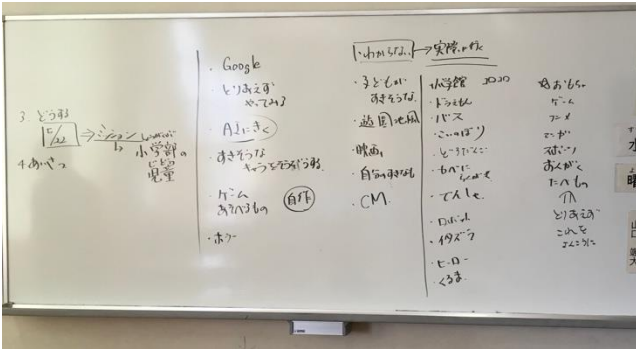 3. どうする
4. あいべつ
小学部の
児童
・Google
・とりあえず
やってみる
・AIにきく
・すきそうな
・ゲーム
あそべるもの
自作
・ホラー
・わからない → 実際に行く
・子どもが
すきそうな
・遊園地風
・映画
・自分のすきなもの
・CM
小学館 2020
・ドラえもん
・バス
・こいのぼり
・でんしゃ
・ロボット
・イタズラ
・ヒーロー
・くるま
おもちゃ
ゲーム
アニメ
マンガ
スポーツ
おんがく
たべもの
とりあえず
これを
さんこうに
水